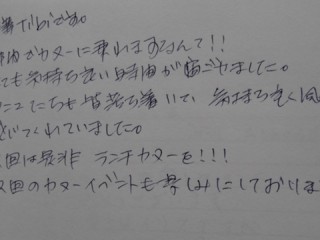 市内でカヌーに乗れますなんて!!
ても気持ち良い時間が過ごせました。
たちも皆落ち着いて、気持ち良く風
ていました。
回は是非 ランチカヌーを!!!
次回のカヌーイベントも楽しみにしておりま